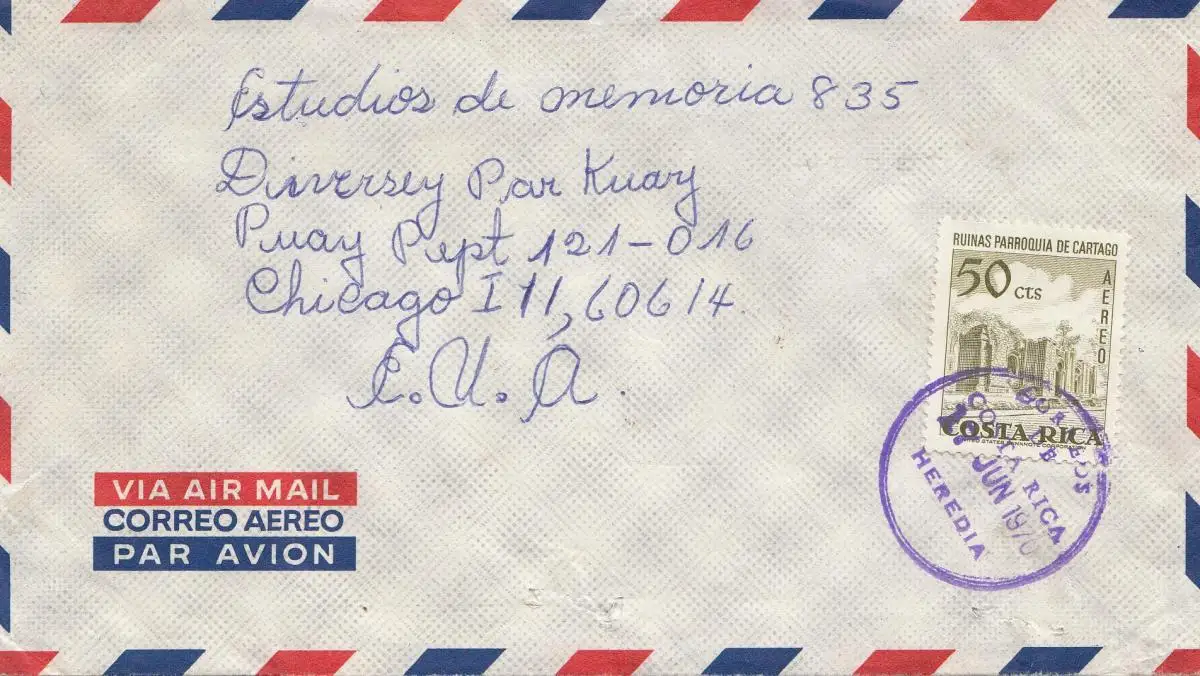 Estudios de memoria 835
Dinversey Par Kuay
Puay Pept 121-016
Chicago Ill, 60614.
E.U.A.
RUINAS PARROQUIA DE CARTAGO
50 cts
AEREO
COSTA RICA
UNITED STATES BANKNOTE CORPORATION
CORREOS DE
COSTA RICA
JUN 1970
HEREDIA
VIA AIR MAIL
CORREO AEREO
PAR AVION